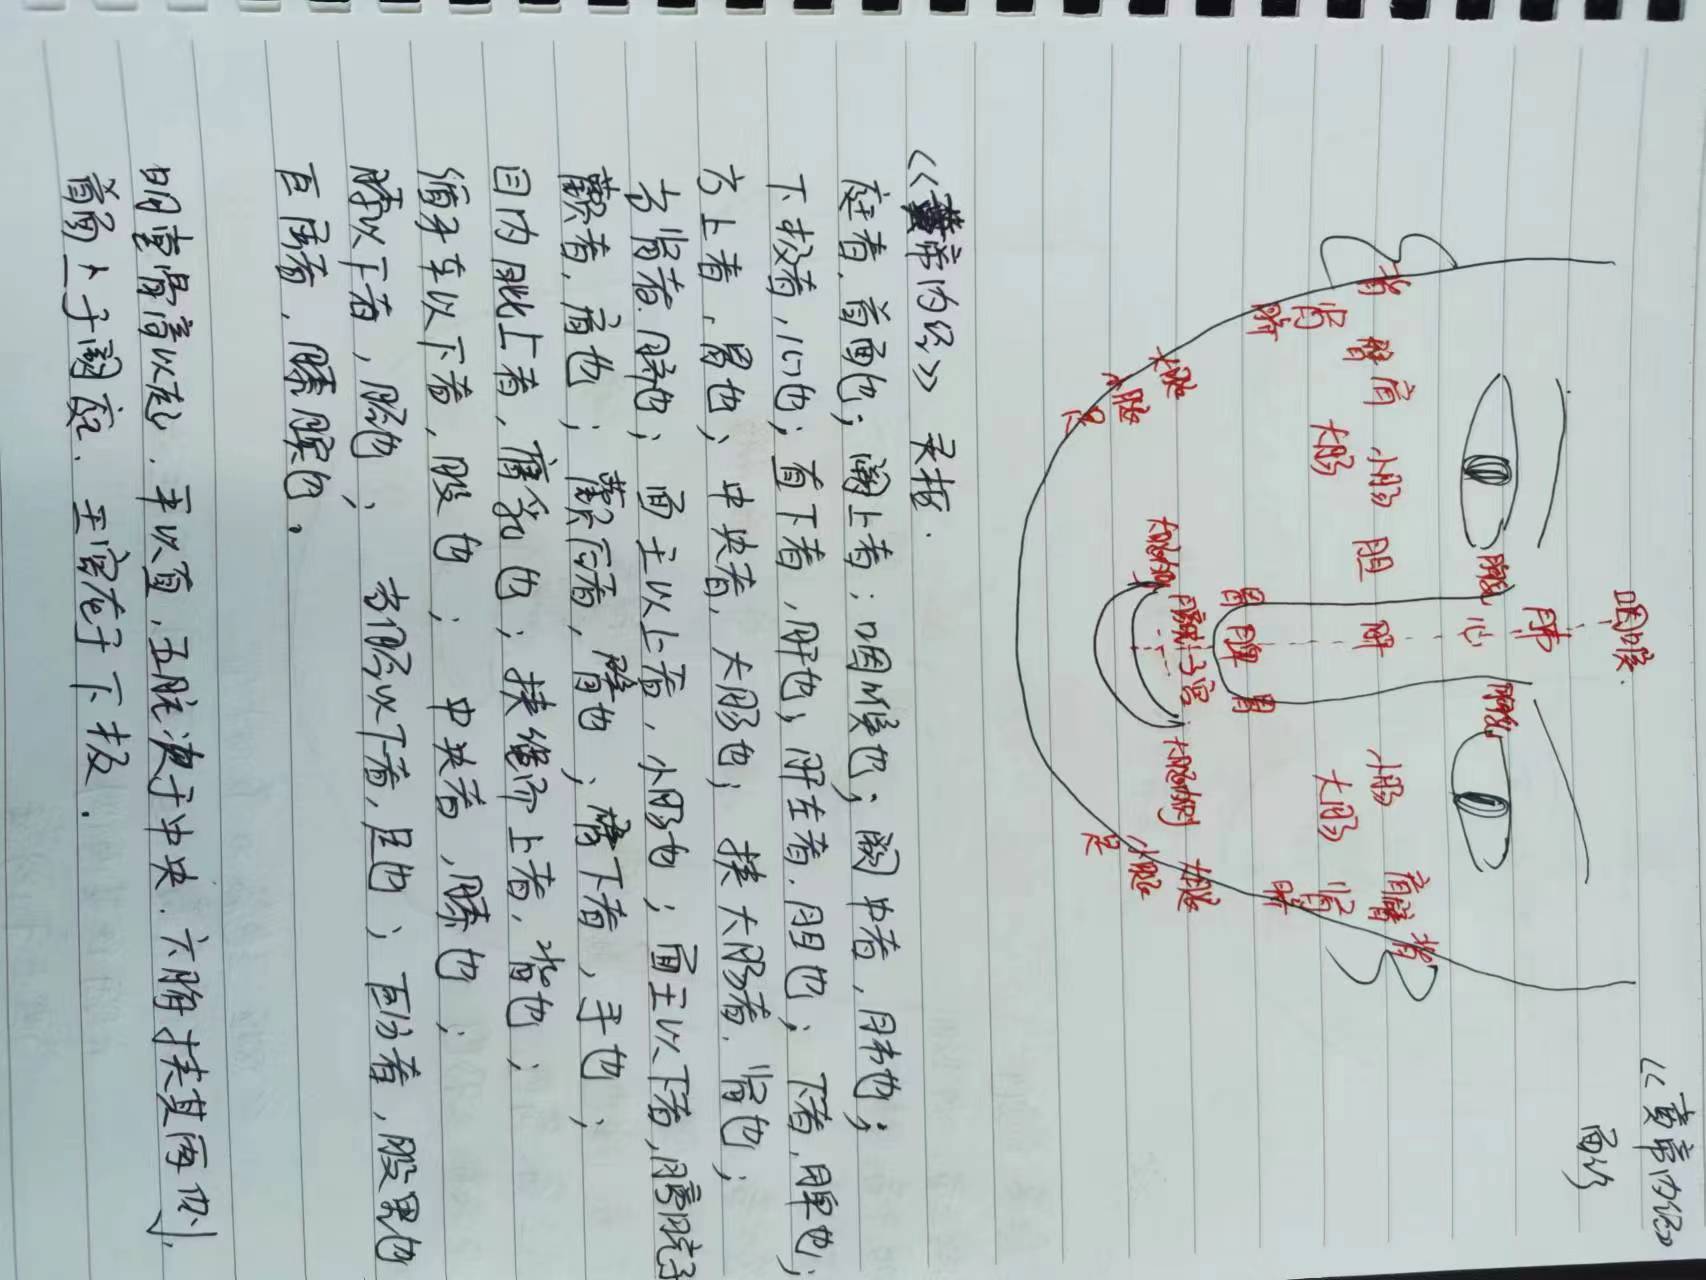 《黄帝内经》
面诊
咽喉
肺
膺乳 心 膺乳
背 臂 肩 小肠 胆 肝 小肠 肩 臂 背
肾 大肠 大肠 肾
脐 胃 脾 胃 脐
大腿 大腿内侧 膀胱子宫 大腿内侧 大腿
小腿 小腿
足 足
《黄帝内经》灵枢.
庭者,首面也;阙上者;咽喉也;阙中者,肺也;
下极者,心也;直下者,肝也;肝左者,胆也;下者,脾也;
方上者,胃也;中央者,大肠也;挟大肠者,肾也;
当肾者,脐也;面王以上者,小肠也;面王以下者,膀胱子
颧者,肩也;颧后者,臂也;臂下者,手也;
目内眦上者,膺乳也;挟绳而上者,背也;
循牙车以下者,股也;中央者,膝也;
膝以下者,胫也;当胫以下者,足也;巨分者,股里也
巨屈者,膝膑也。
明堂骨高以起,平以直,五脏次于中央,六腑挟其两侧,
首面上于阙庭,王宫在于下极.